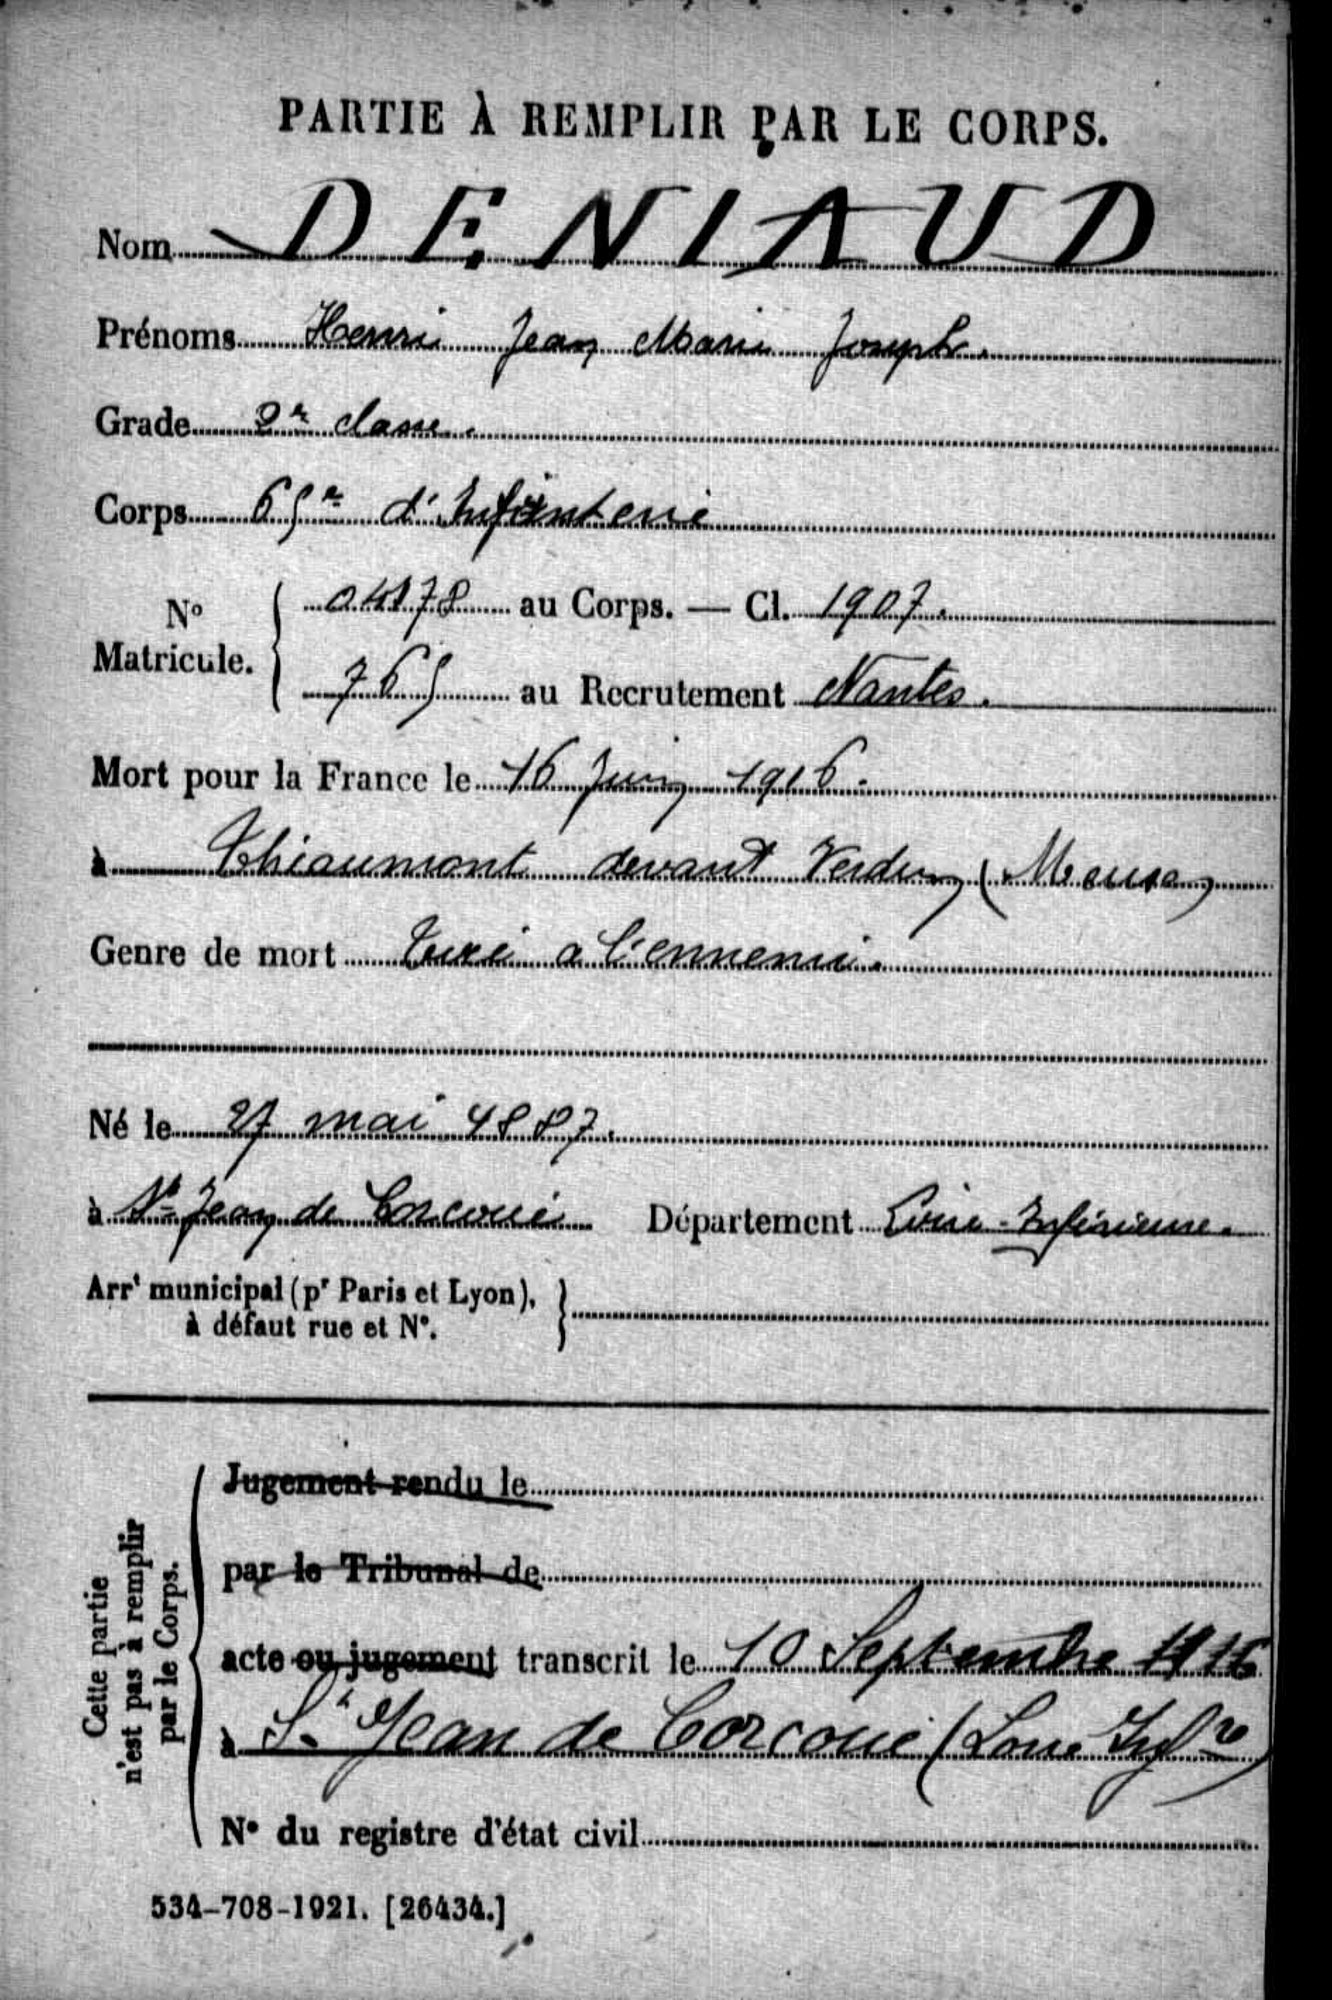 PARTIE À REMPLIR PAR LE CORPS.
Nom DENIAUD
Prénoms Henri Jean Marie Joseph.
Grade 2e classe.
Corps 65e d'Infanterie
No Matricule. 04178 au Corps. — Cl. 1907.
765 au Recrutement Nantes.
Mort pour la France le 16 Juin 1916.
à Thiaumont devant Verdun (Meuse)
Genre de mort Tué a l'ennemi.
Né le 27 mai 1887.
à St Jean de Corcoué Département Loire-Inférieure.
Arrt municipal (pr Paris et Lyon), à défaut rue et No.
Cette partie n'est pas à remplir par le Corps.
Jugement rendu le
par le Tribunal de
acte ou jugement transcrit le 10 Septembre 1916
à St Jean de Corcoué (Loire Infre)
No du registre d'état civil
534-708-1921. [26434.]